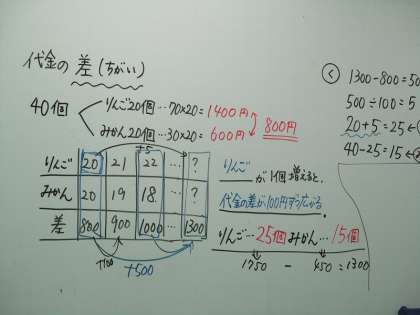 代金の差(ちがい)
40個
りんご20個…70×20=1400円
みかん20個…30×20=600円
800円
+5
りんご 20 21 22 … ?
みかん 20 19 18. … ?
差 800 900 1000 … 1300
+100
+500
りんごが1個増えると、
代金の差が100円ずつ広がる.
りんご…25個 みかん…15個
1750 - 450 = 1300
く
1300-800=50
500÷100=5
20+5=25←
40-25=15←